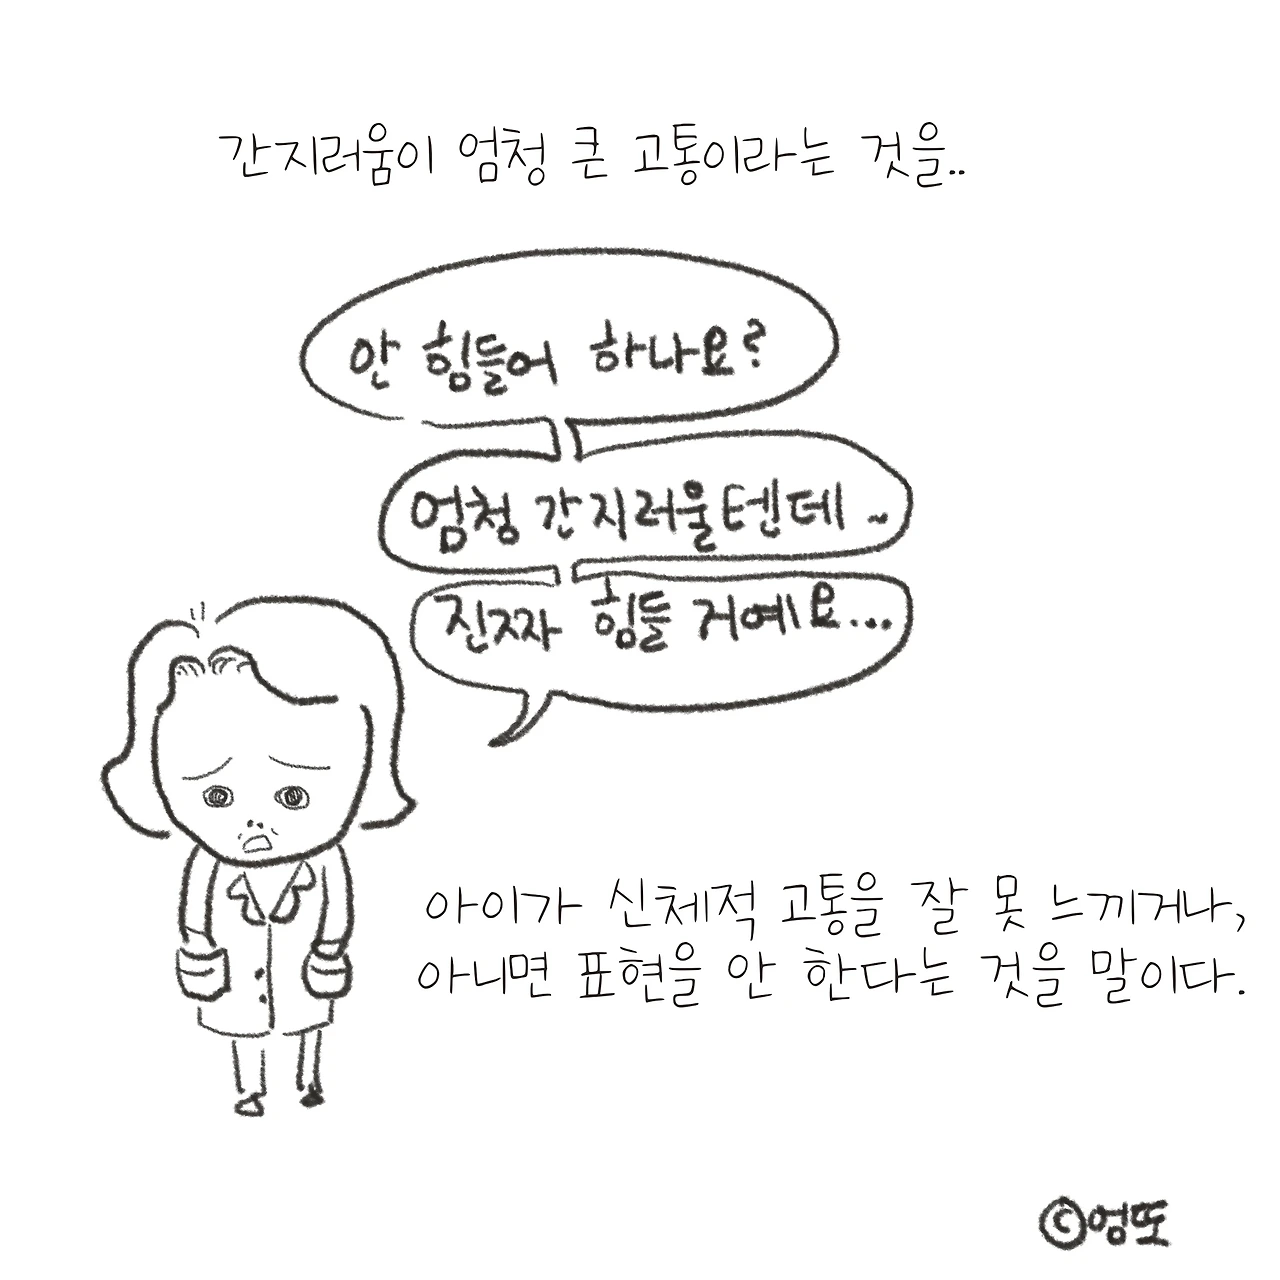 간지러움이 엄청 큰 고통이라는 것을..
안 힘들어 하나요?
엄청 간지러울텐데..
진짜 힘들 거예요...
아이가 신체적 고통을 잘 못 느끼거나,
아니면 표현을 안 한다는 것을 말이다.
©엉또